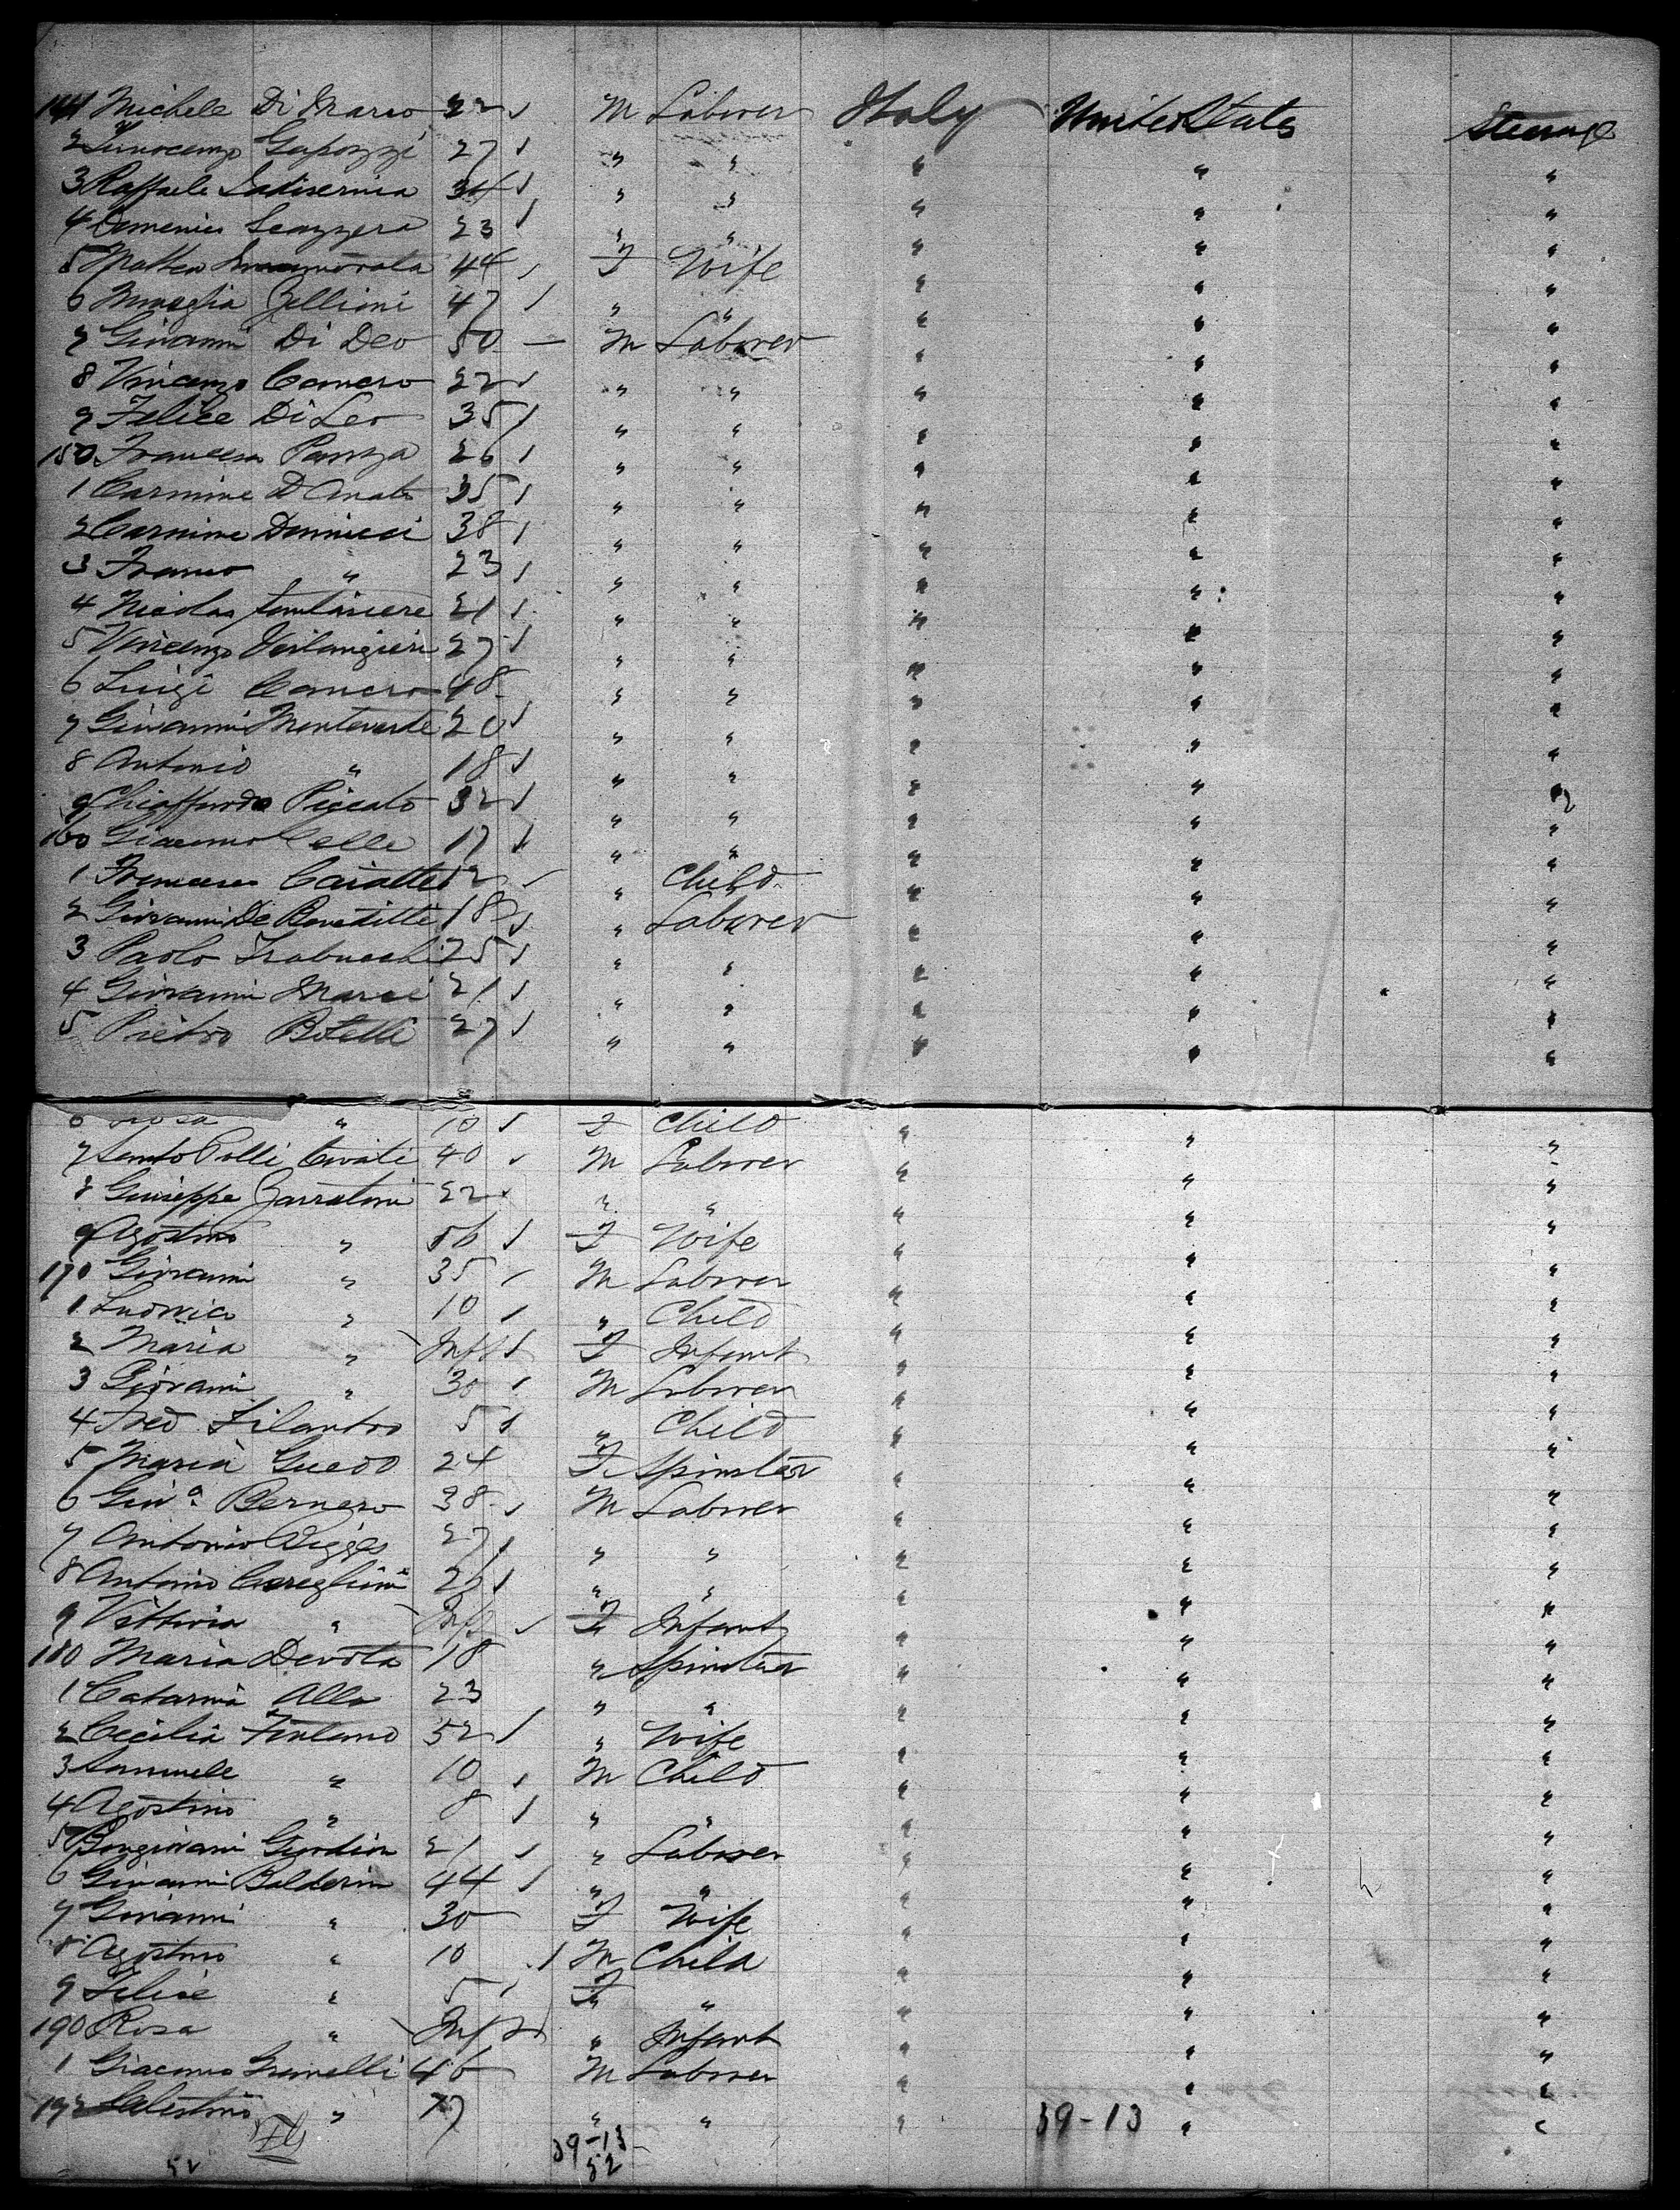 141 Michele Di Marco 22 M Laborer Italy United States Steerage
2 Innocenzo Gapozzi 27 " " " " "
3 Raffaele Ladisernia 34 " " " " "
4 Domenico Scazzera 23 " " " " "
5 Matteo 44 F Wife " " "
6 Zellioni 47 " " " " "
7 Giovanni Di Deo 50 M Laborer " " "
8 Vincenzo Cancro 22 " " " " "
9 Felice Di Leo 35 " " " " "
150 Francesco Panza 26 " " " " "
1 Carmine D Amato 35 " " " " "
2 Carmine Dannicci 38 " " " " "
3 Franco " 23 " " " " "
4 Nicolas 21 " " " " "
5 Vincenzo 27 " " " " "
6 Luigi Cancro 48 " " " " "
7 Giovanni Monteverde 20 " " " " "
8 Antonio " 18 " " " " "
9 Chiaffardo Piccato 32 " " " " "
160 Giacomo Celle 17 " " " " "
1 Francesco 12 " Child " " "
2 Giovanni De Beneditti 18 " Laborer " " "
3 Paolo Trabucchi 25 " " " " "
4 Giovanni Marci 21 " " " " "
5 Pietro Botelli 27 " " " " "
6 Rosa " 10 F Child " " "
7 Polli 40 M Laborer " " "
8 Giuseppe Zarratoni 22 " " " " "
9 Agostino " 56 F Wife " " "
170 Giovanni " 35 M Laborer " " "
1 Ludovico " 10 " Child " " "
2 Maria " Inft F Infant " " "
3 Giovanni " 30 M Laborer " " "
4 Fred Filantro 5 " Child " " "
5 Maria Guedo 24 F Spinster " " "
6 Giova Bernero 38 M Laborer " " "
7 Antonio 27 " " " " "
8 Antonio Careglioni 26 " " " " "
9 Vittoria " Inft F Infant " " "
180 Maria Devota 18 " Spinster " " "
1 Catarina Allo 23 " " " " "
2 Cecilia 52 " Wife " " "
3 Samuele " 10 M Child " " "
4 Agostino " 8 " " " " "
5 Bongiovani Giordion 21 " Laborer " " "
6 Giovanni Balderin 44 " " " " "
7 Giovanni " 30 F Wife " " "
8 Agostino " 10 M Child " " "
9 Felice " 5 F " " " "
190 Rosa " Inft " Infant " " "
1 Giacomo Gremelli 46 M Laborer " " "
192 Celestino " 17 " " " " "
39-13 39-13
52 52